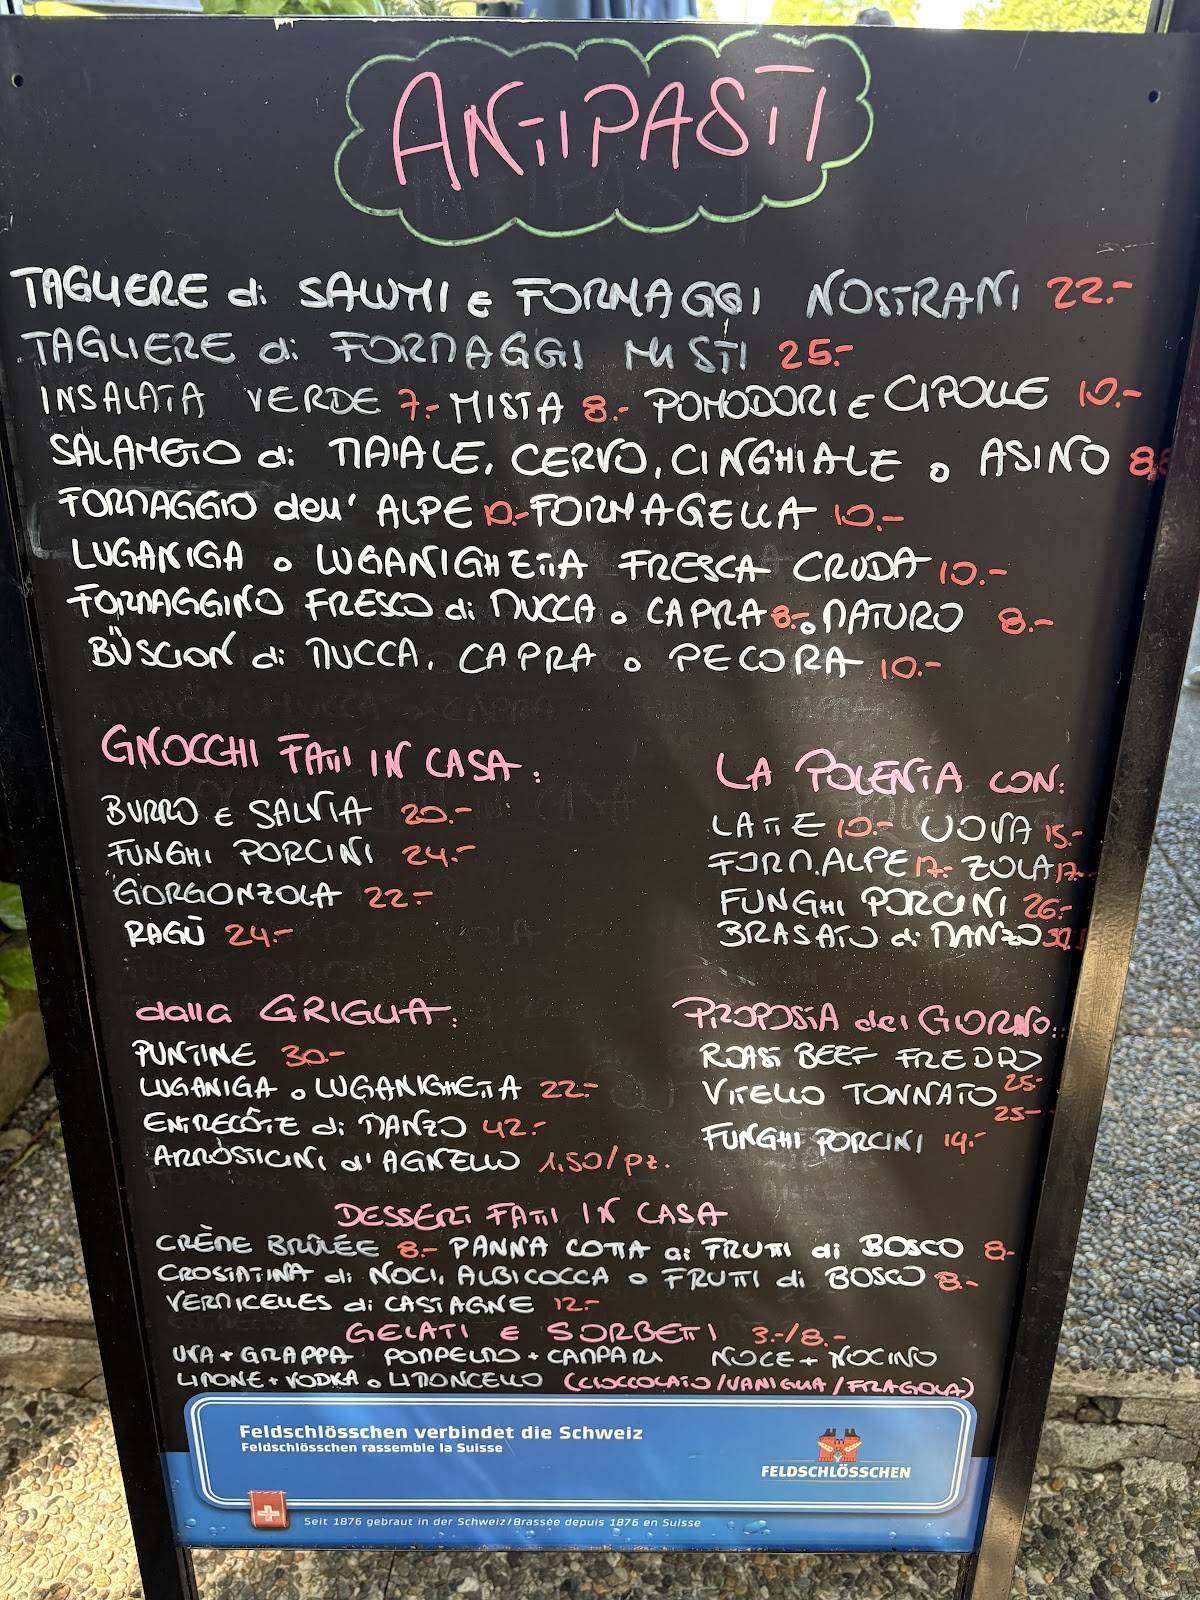 ANTIPASTI
TAGLIERE di SALUMI e FORMAGGI NOSTRANI 22.-
TAGLIERE di FORMAGGI MISTI 25.-
INSALATA VERDE 7.- MISTA 8.- POMODORI e CIPOLLE 10.-
SALAMETO di MAIALE, CERVO, CINGHIALE o ASINO 8
FORMAGGIO dell' ALPE 10.- FORMAGELLA 10.-
LUGANIGA o LUGANIGHETTA FRESCA CRUDA 10.-
FORMAGGINO FRESCO di MUCCA o CAPRA 8.- o MATURO 8.-
BÜSCION di MUCCA, CAPRA o PECORA 10.-
GNOCCHI FATTI IN CASA:
BURRO E SALVIA 20.-
FUNGHI PORCINI 24.-
GORGONZOLA 22.-
RAGÙ 24.-
LA POLENTA CON:
LATTE 10.- UOVA 15.-
FORM.ALPE 17.- ZOLA 17.-
FUNGHI PORCINI 26.-
BRASATO di MANZO
dalla GRIGLIA:
PUNTINE 30.-
LUGANIGA o LUGANIGHETTA 22.-
ENTRECÔTE di MANZO 42.-
ARROSTICINI d'AGNELLO 1,50/PZ.
PROPOSTA del GIORNO:
ROAST BEEF FREDDO 25.-
VITELLO TONNATO 25.-
FUNGHI PORCINI 14.-
DESSERT FATTI IN CASA
CRÈME BRÛLÉE 8.- PANNA COTTA ai FRUTTI di BOSCO 8.-
CROSTATINA di NOCI, ALBICOCCA o FRUTTI di BOSCO 8.-
VERMICELLES di CASTAGNE 12.-
GELATI E SORBETTI 3.-/8.-
UVA + GRAPPA POMPELMO + CAMPARI NOCE + NOCINO
LIMONE + VODKA o LIMONCELLO (CIOCCOLATO/VANIGLIA/FRAGOLA)
Feldschlösschen verbindet die Schweiz
Feldschlösschen rassemble la Suisse
FELDSCHLÖSSCHEN
Seit 1876 gebraut in der Schweiz/Brassée depuis 1876 en Suisse